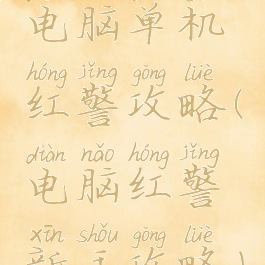 电脑单机
hóng jǐng gōng lüè
红警攻略(
diàn nǎo hóng jǐng
电脑红警
xīn shǒu gōng lüè
新手攻略)